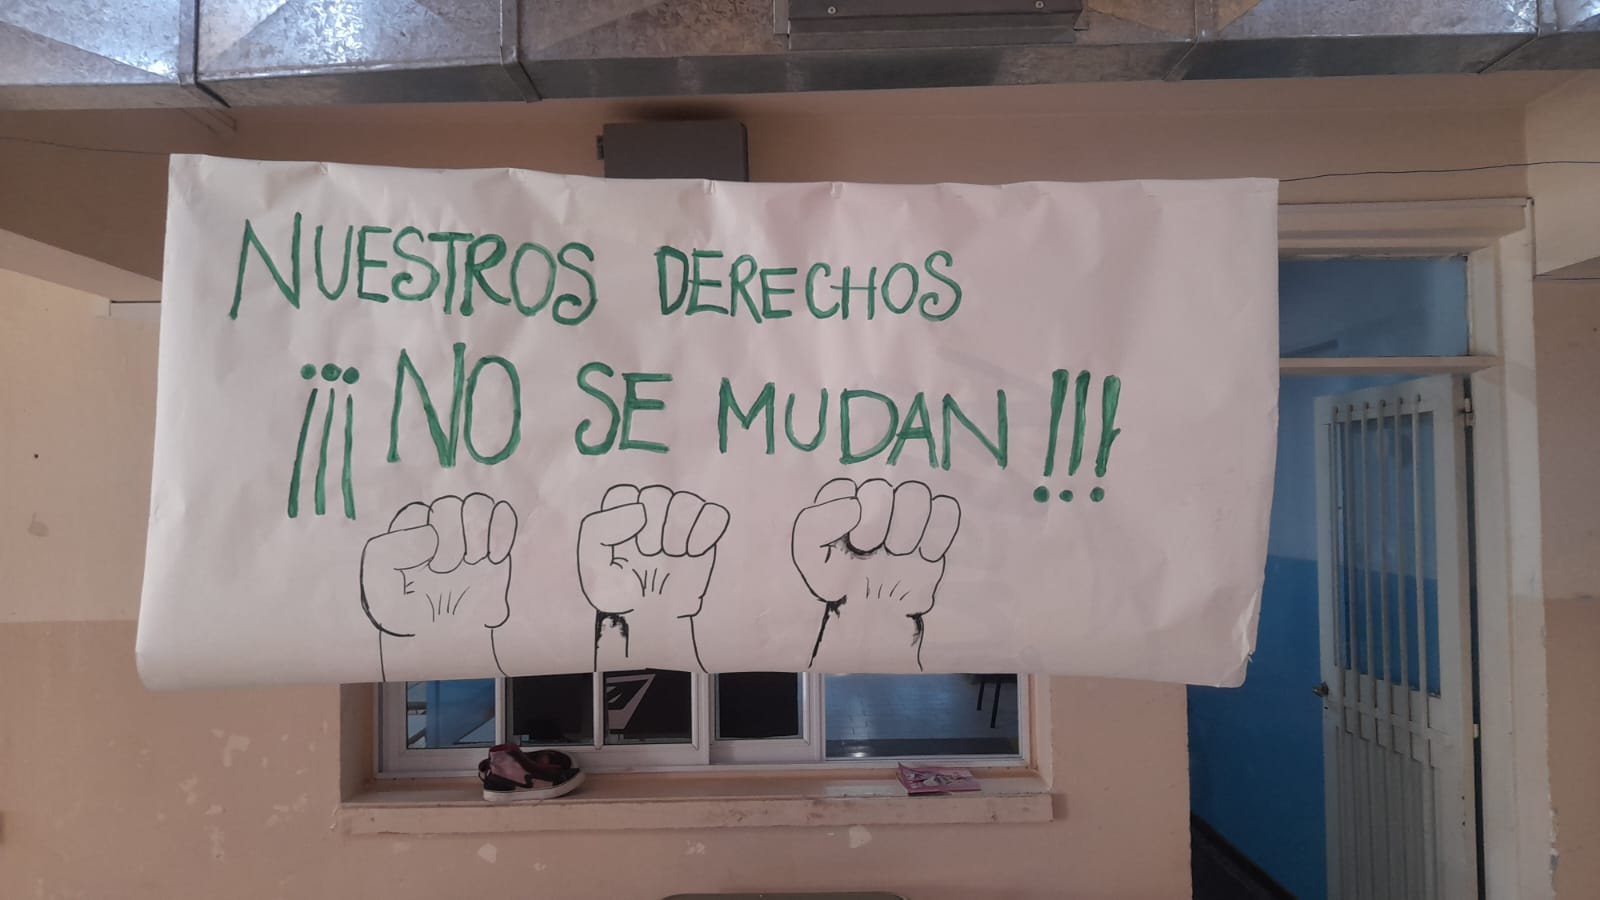 NUESTROS DERECHOS
¡¡¡NO SE MUDAN!!!